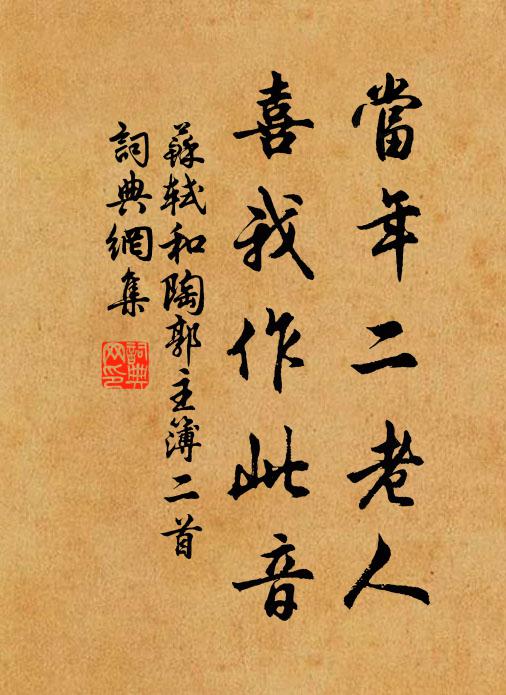 當年二老人
喜我作此音
蘇軾和陶郭主簿二首
詞典網集
詞典網印